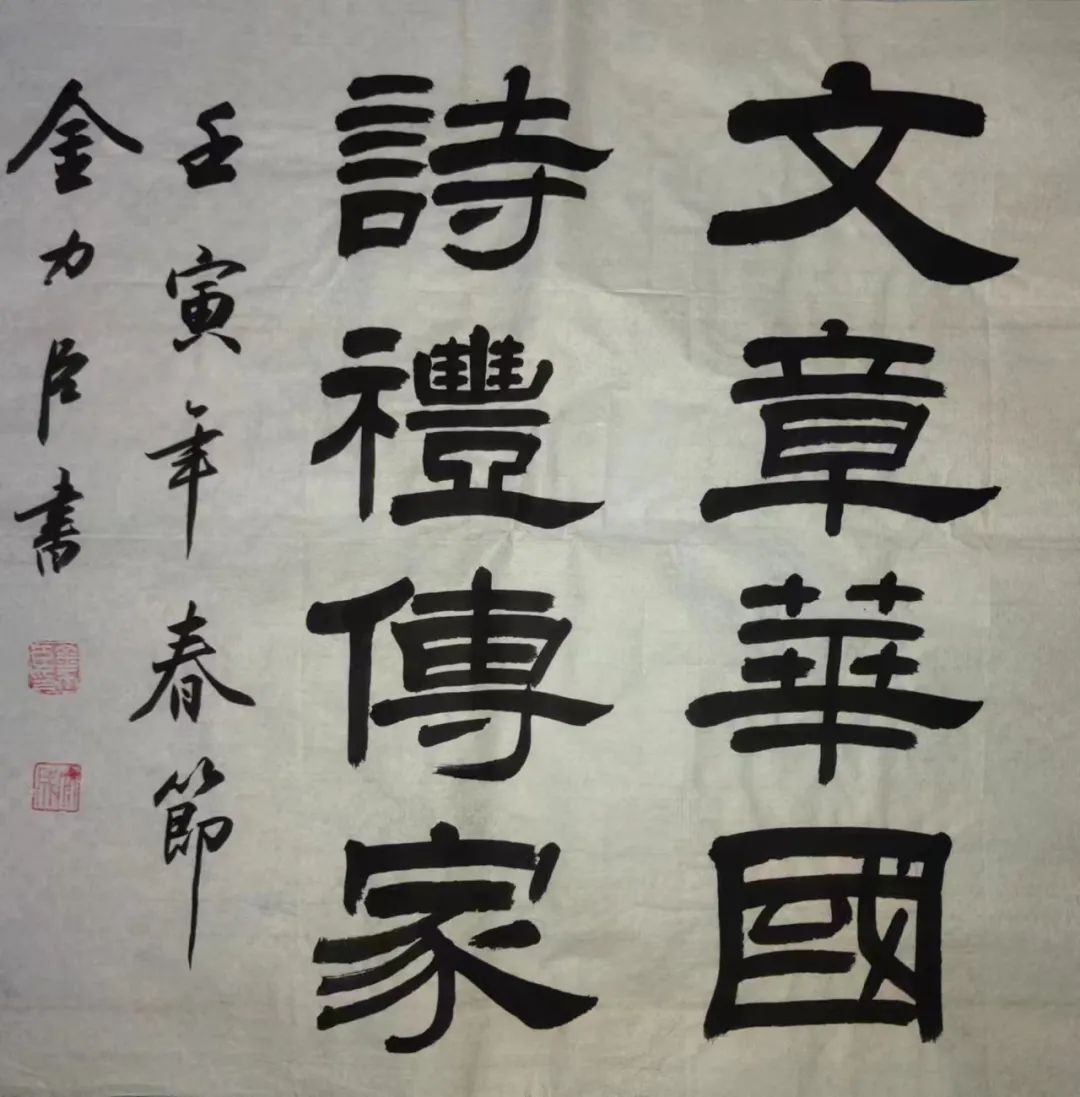 文章華國
詩禮傳家
壬寅年春節
金力臣書